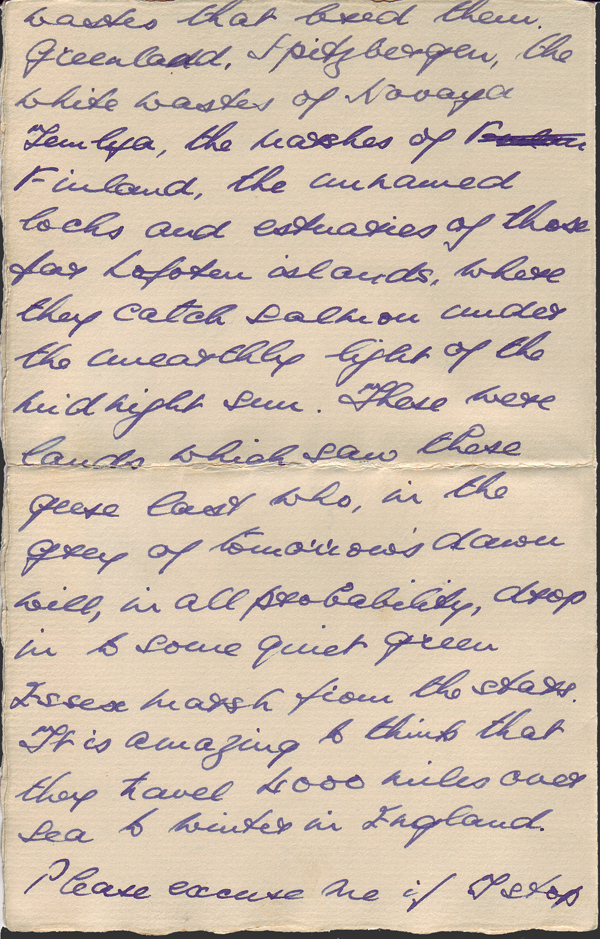 wastes that bred them.
Greenladd, Spitzbergen, the
white wastes of Novaya
Zemlya, the marshes of
Finland, the unnamed
lochs and estuaries of those
far Lofoten islands, where
they catch salmon under
the unearthly light of the
midnight sun. These were
lands which saw these
geese last who, in the
grey of tomorrow's dawn
will, in all probability, drop
in to some quiet green
Essex marsh from the stars.
It is amazing to think that
they travel 4000 miles over
sea to winter in England.
Please excuse me if I stop